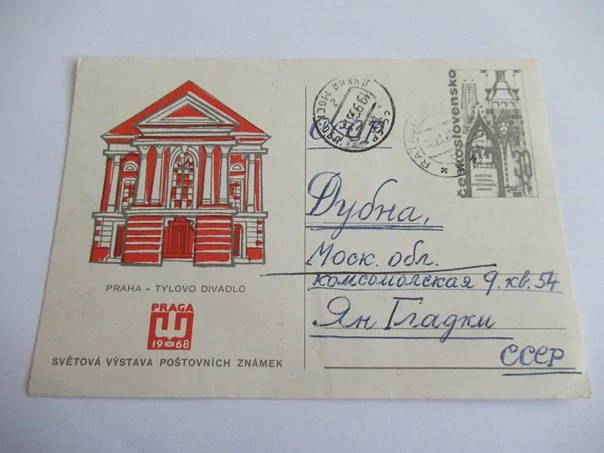 PRAHA - TYLOVO DIVADLO
PRAGA
1968
SVĚTOVÁ VÝSTAVA POŠTOVNÍCH ZNÁMEK
československo
30
СССР
Дубна,
Моск. обл.
комсомолская 9. кв. 54
Ян Гладки
СССР